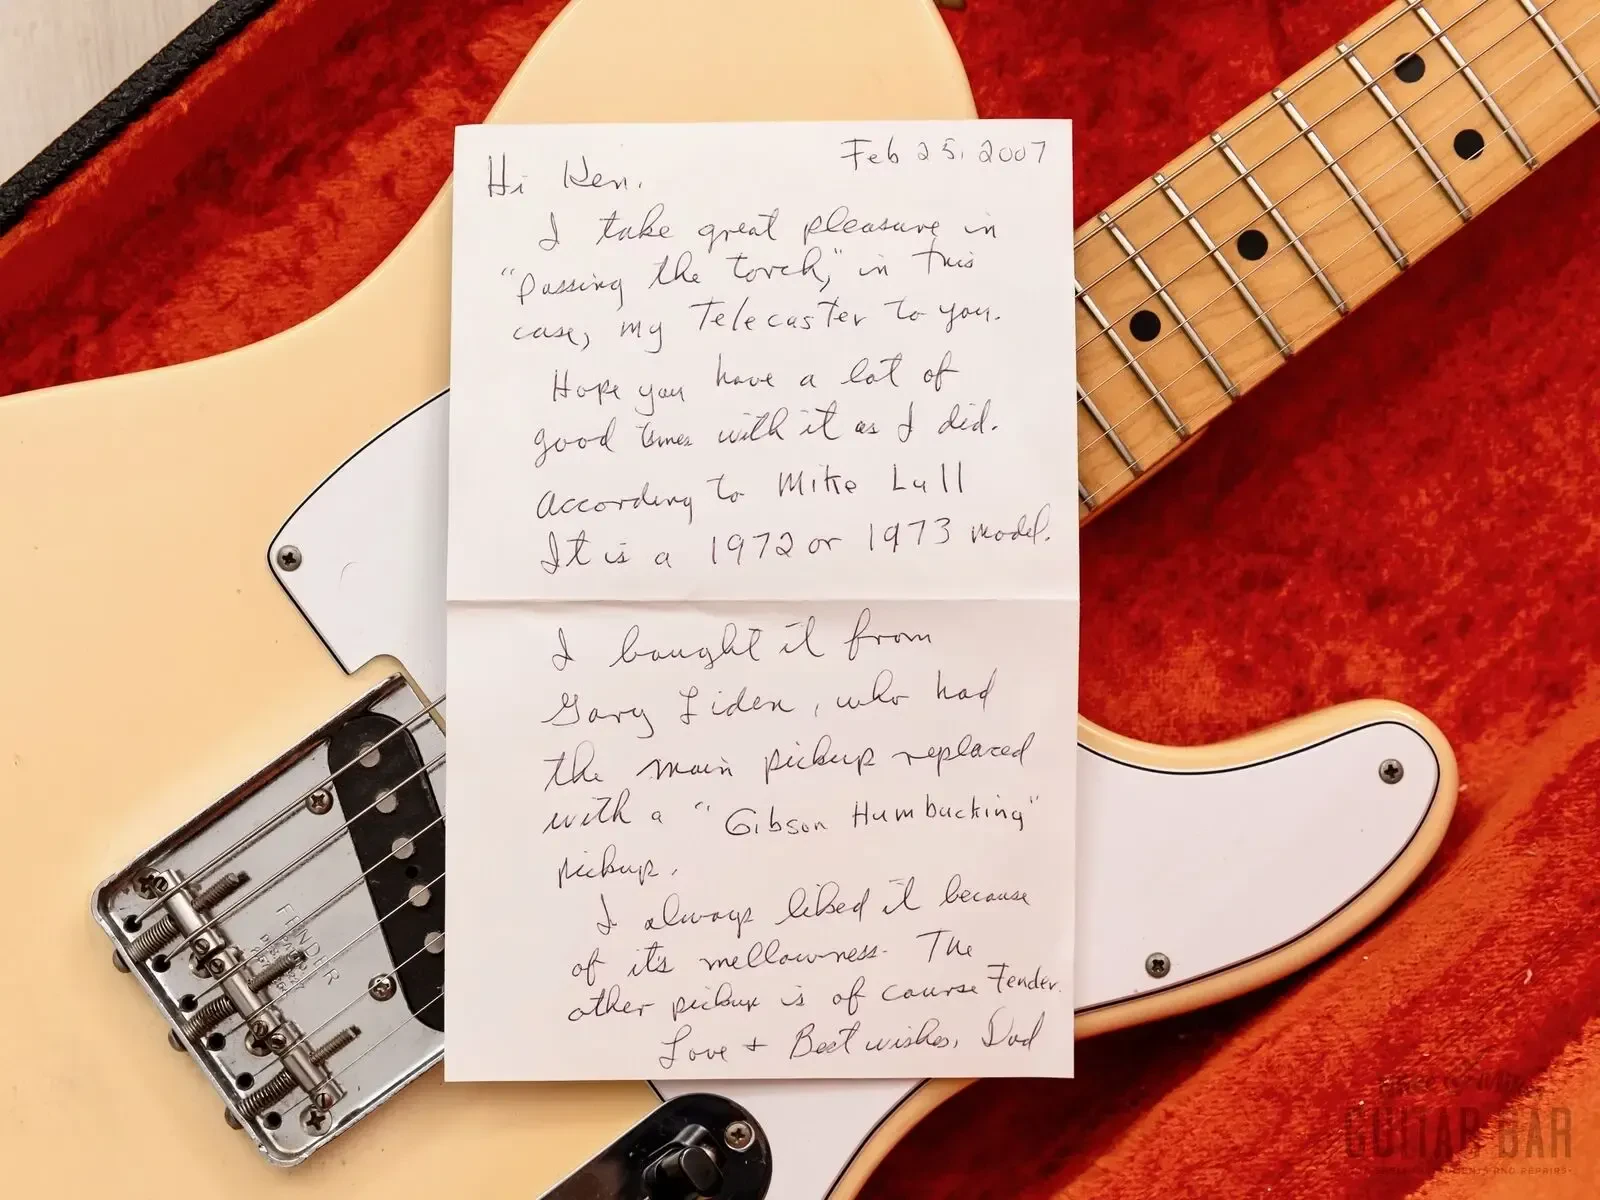 Feb 25, 2007
Hi Ken.
I take great pleasure in
"passing the torch," in this
case, my Telecaster to you.
Hope you have a lot of
good times with it as I did.
According to Mike Lull
It is a 1972 or 1973 model.
I bought it from
Gary Liden, who had
the main pickup replaced
with a "Gibson Humbucking"
pickup.
I always liked it because
of it's mellowness. The
other pickup is of course Fender.
Love + Best wishes, Dad
FENDER
GUITAR BAR